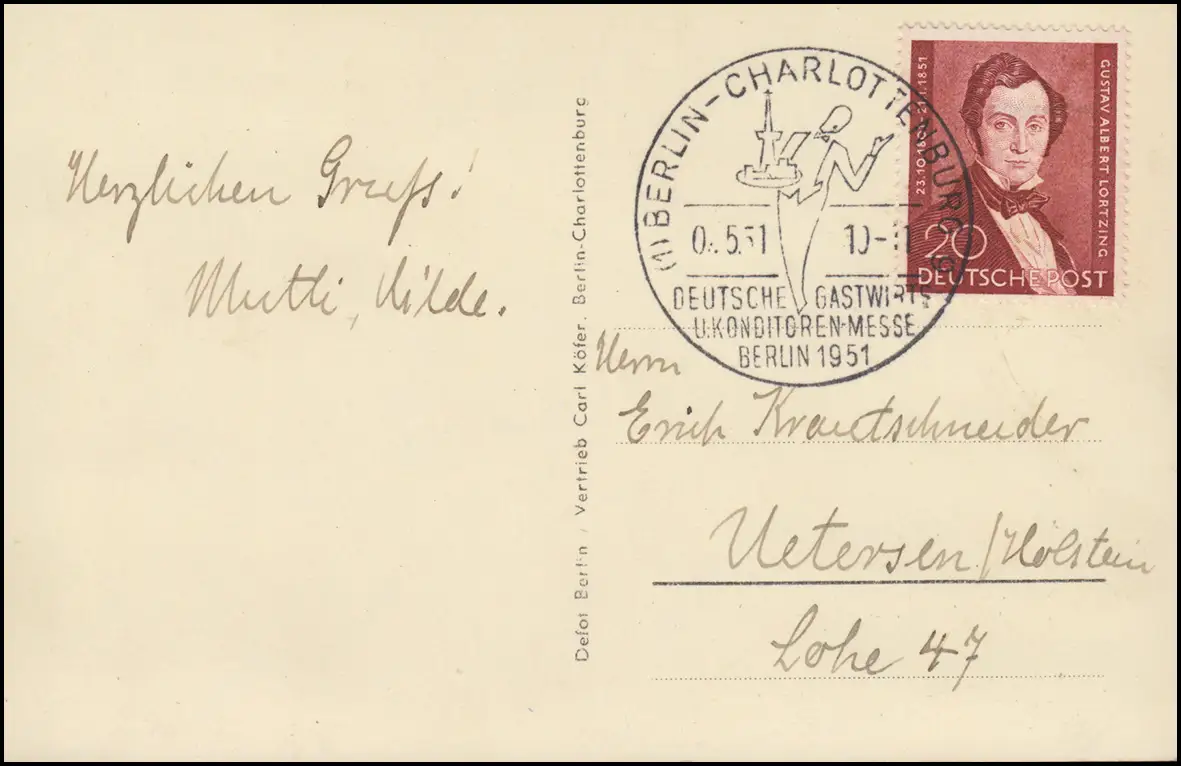 Herzlichen Gruß!
Mutti, Hilde.
Defot Berlin / Vertrieb Carl Köfer, Berlin-Charlottenburg
(1) BERLIN-CHARLOTTENBURG
.5.51
10-
DEUTSCHE GASTWIRTS
U.KONDITOREN-MESSE
BERLIN 1951
23.10.1801 - 21.1.1851
GUSTAV ALBERT LORTZING
20
DEUTSCHE POST
Herrn
Erich Krautschneider
Uetersen/Holstein
Lohe 47